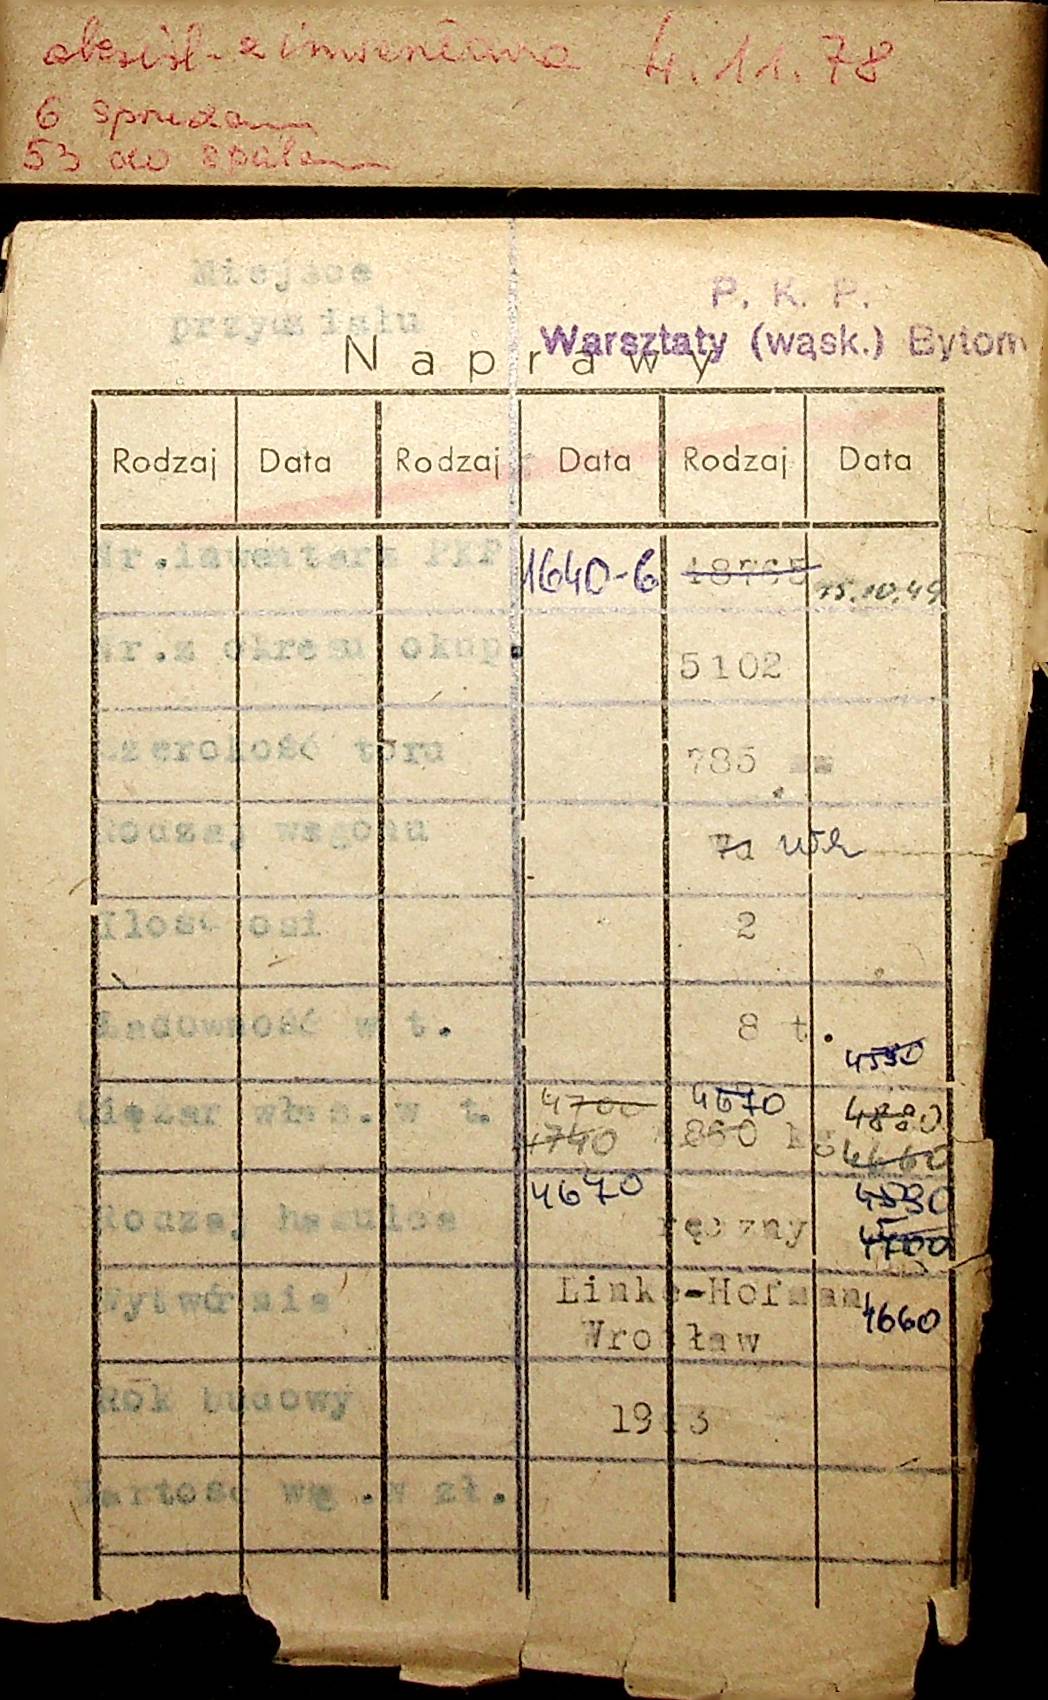 4.11.78
6
53 do
Miejsce
przydziału
P. K. P.
Warsztaty (wąsk.) Bytom
Naprawy
Rodzaj Data Rodzaj Data Rodzaj Data
Nr.inwentarz PKP 1640-6 18765 15.10.49
Nr.z okresu okup. 5102
Szerokość toru 785 mm
Rodzaj wagonu
Ilość osi 2
Ładowność w t. 8 t.
4550
Ciężar włas. w t. 4700 4670 4880
4740 860 kg 4660
4670
Rodzaj hamulca ręczny 4700
Wytwórnia Linke-Hofman
Wrocław 4660
Rok budowy
Wartość wg.w zł.